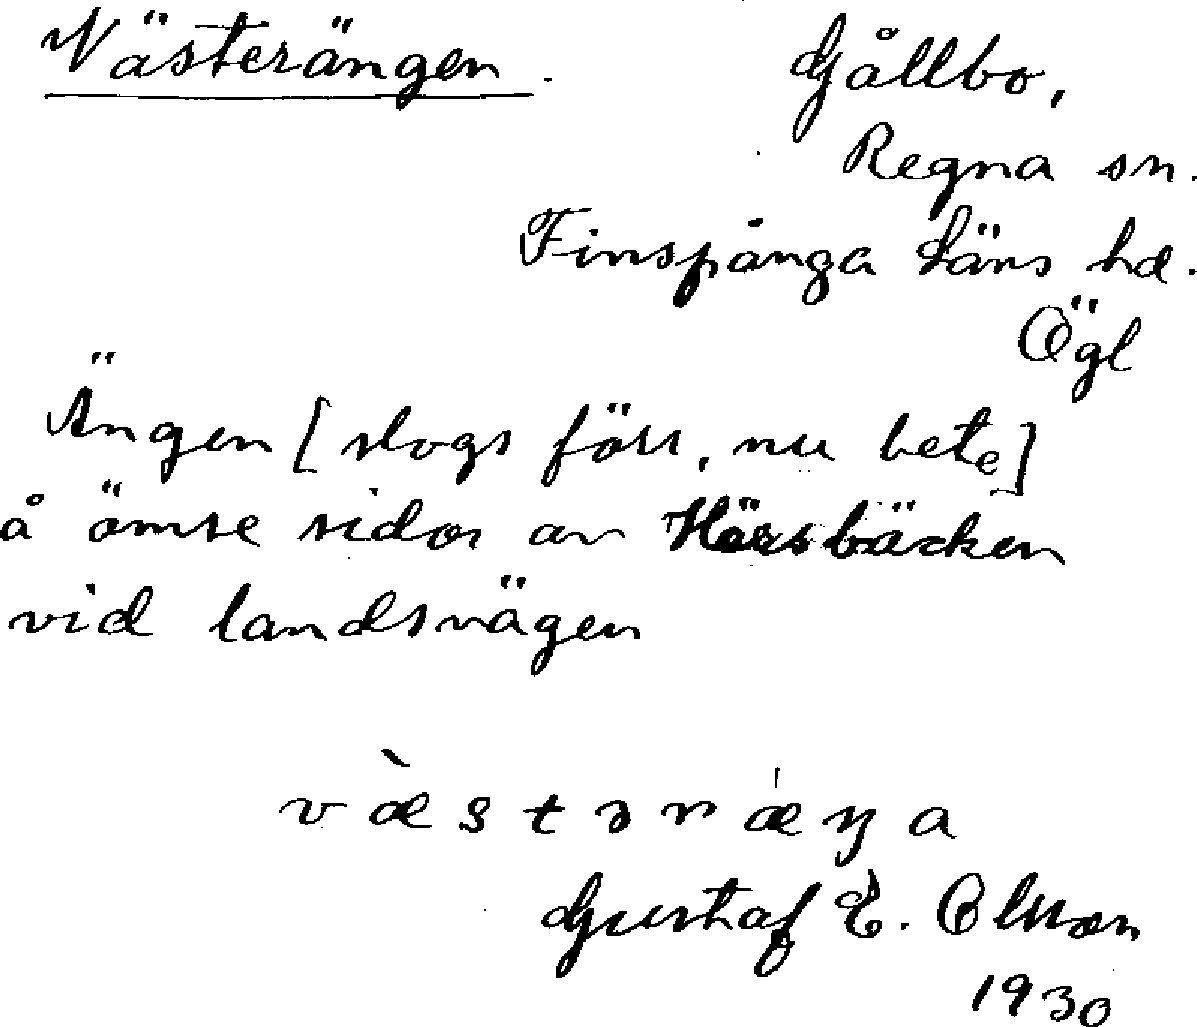 Västerängen. Gållbo,
Regna sn.
Finspånga läns hd.
Ögl
Ängen [slogs förr, nu bete]
å ömse sidor av Hörsbäcken
vid landsvägen
væ̀stəræ̍ŋa
Gustaf E. Olsson
1930